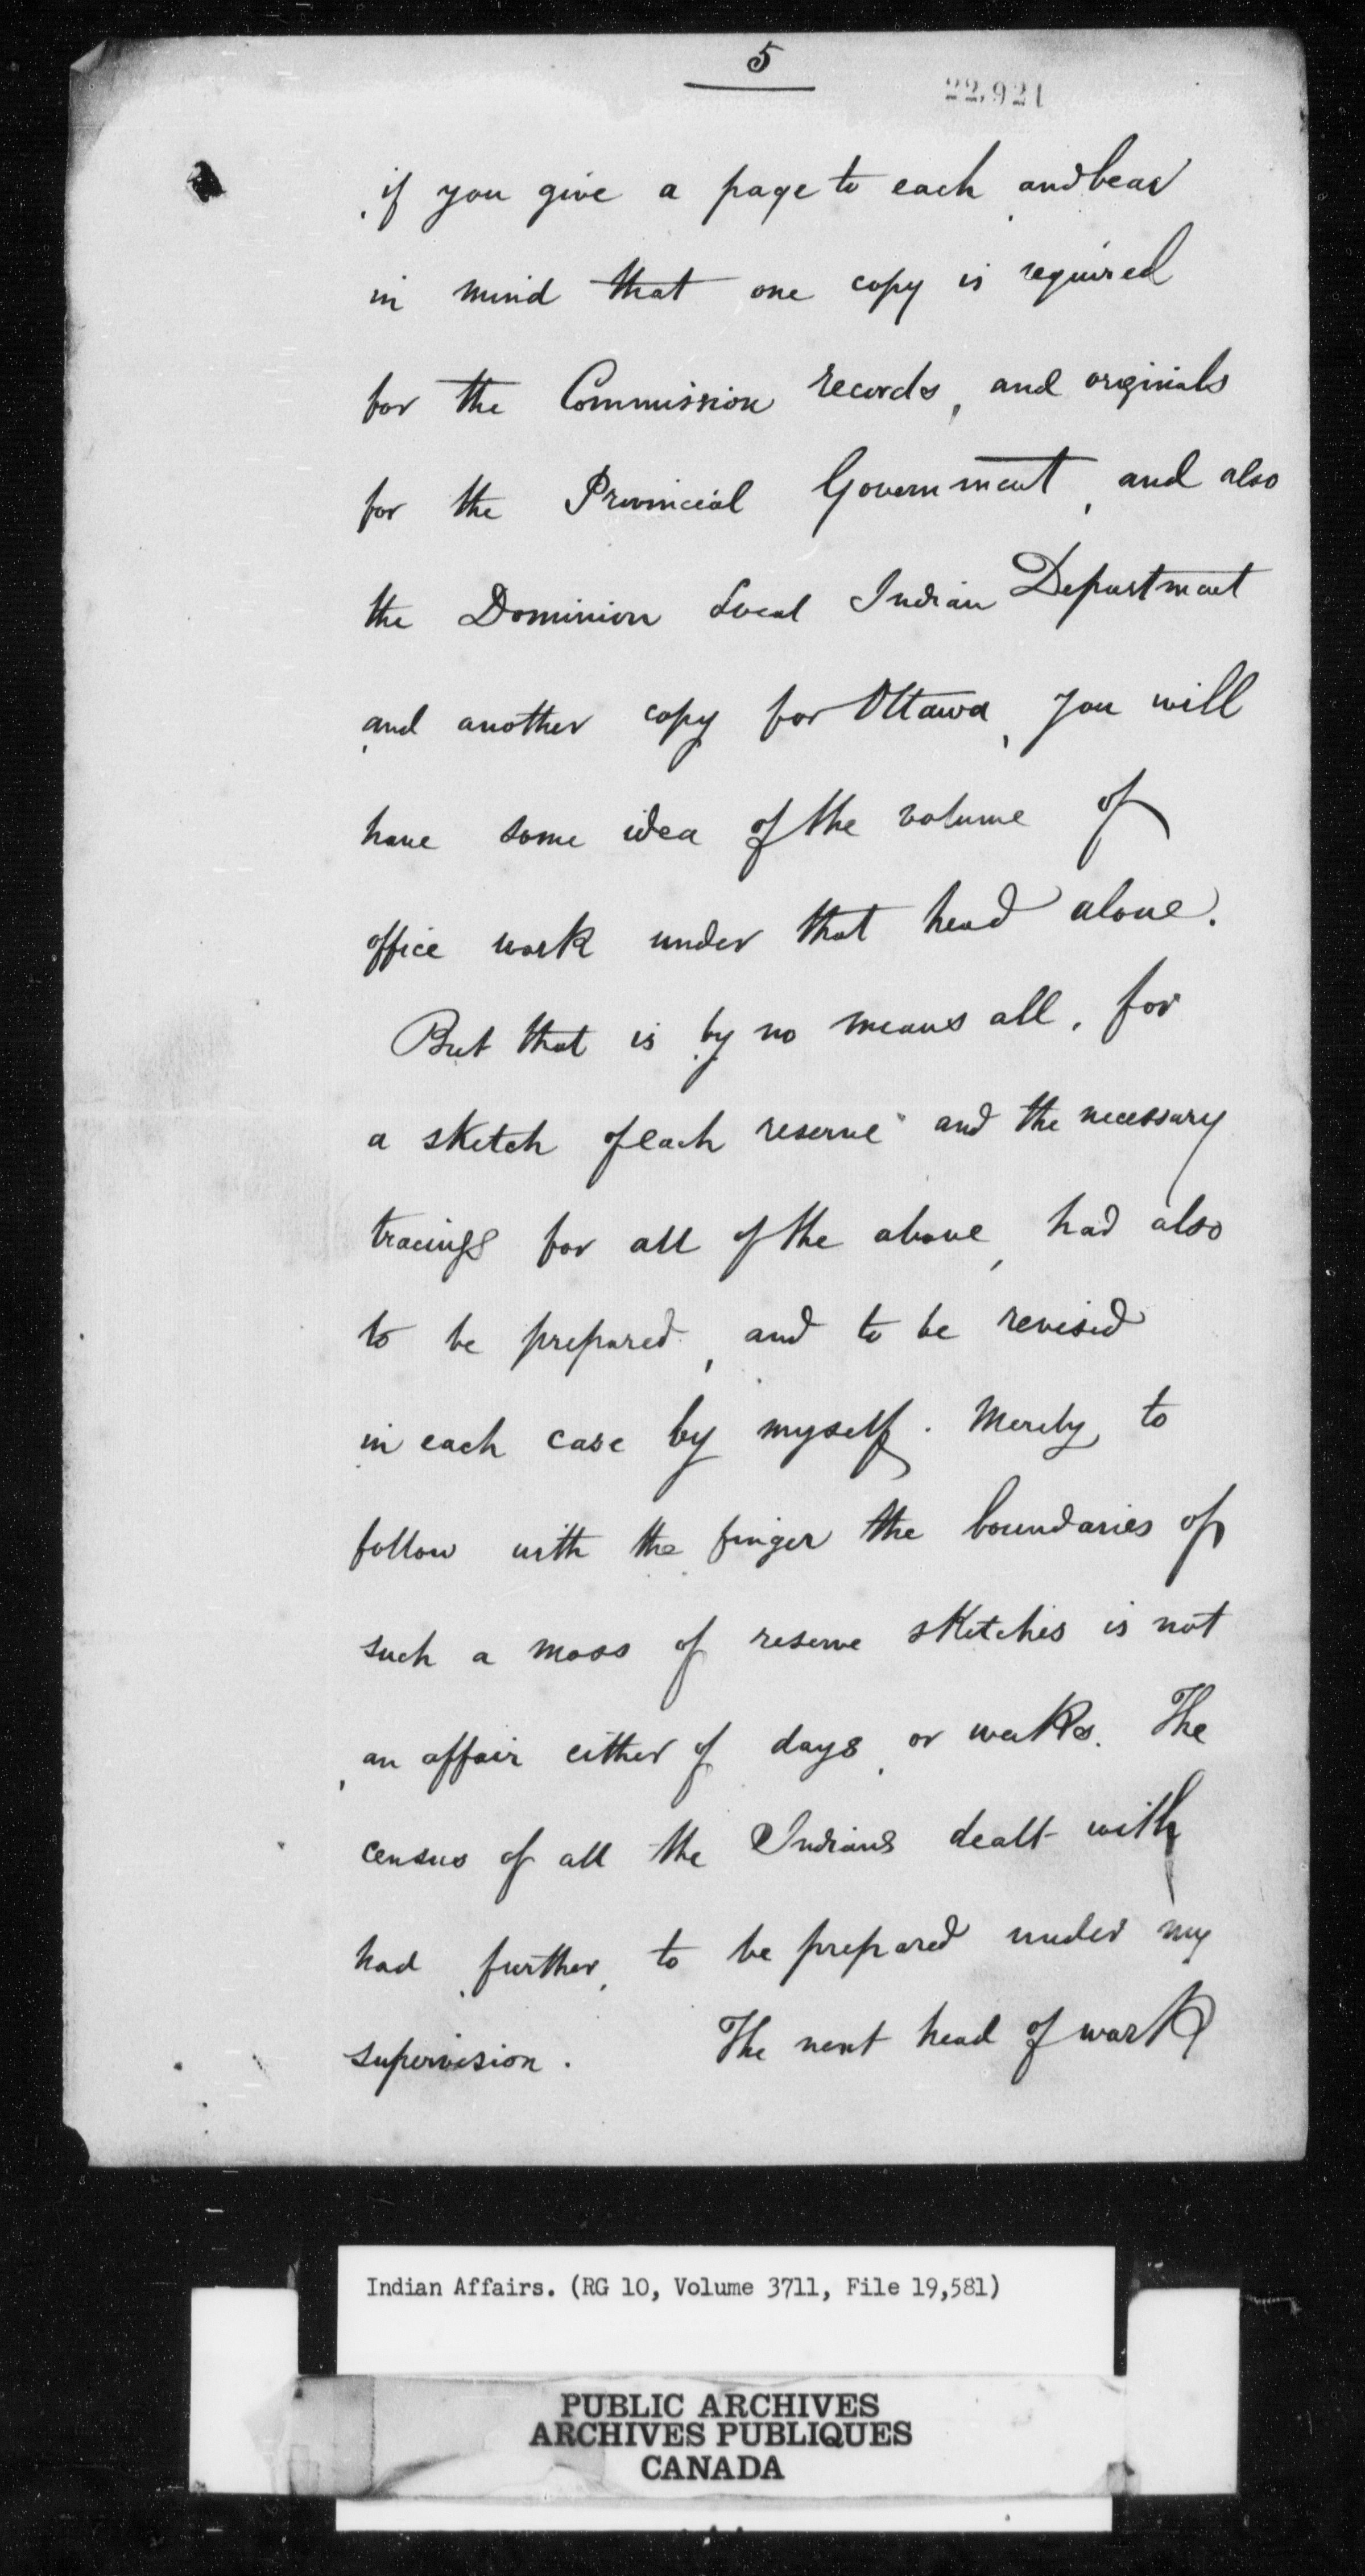 5
22,921
if you give a page to each and bear
in mind that one copy is required
for the Commission records, and originals
for the Provincial Government, and also
the Dominion Local Indian Department
and another copy for Ottawa, you will
have some idea of the volume of
office work under that head alone.
But that is by no means all, for
a sketch of each reserve and the necessary
tracings for all of the above, had also
to be prepared, and to be revised
in each case by myself. Merely to
follow with the finger the boundaries of
such a mass of reserve sketches is not
an affair either of days, or weeks. The
census of all the Indians dealt with
had, further, to be prepared under my
supervision. The next head of work
Indian Affairs. (RG 10, Volume 3711, File 19,581)
PUBLIC ARCHIVES
ARCHIVES PUBLIQUES
CANADA